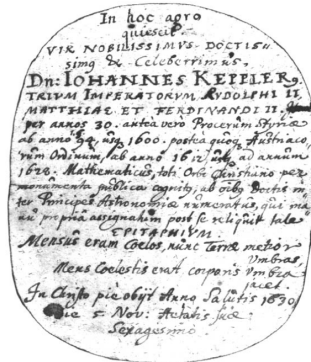 In hoc agro
quiescit
VIR NOBILISSIMVS DOCTIS-
simq & Celeberrimus,
Dn: IOHANNES KEPPLER9,
TRIVM IMPERATORVM RVDOLPHI II
MATTHIAE ET FERDINANDI II,
per annos 30. antea vero Procerum Styriae
ab anno 94. usq 1600. postea quoq Austriaco-
rum Ordinum, ab anno 1612 usq ad annum
1628. Mathematicus, toti Orbi Christiano per
monumenta publica cognitq, ab oibq Doctis in-
ter Principes Astronomiae numeratus, qui ma-
nu propria assignatum post se reliquit tale
EPITAPHIVM.
Mensus eram Coelos, nunc Terrae metior
Vmbras,
Mens Coelestis erat corporis Vmbra
jacet.
In Christo pie obijt Anno Salutis 1630
die 5 Nov: Aetatis suae
Sexagesimo